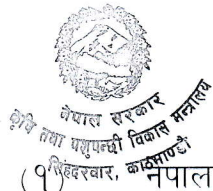 नेपाल सरकार
कृषि तथा पशुपन्छी विकास मन्त्रालय
सिंहदरबार, काठमाण्डौ
(१) नेपाल